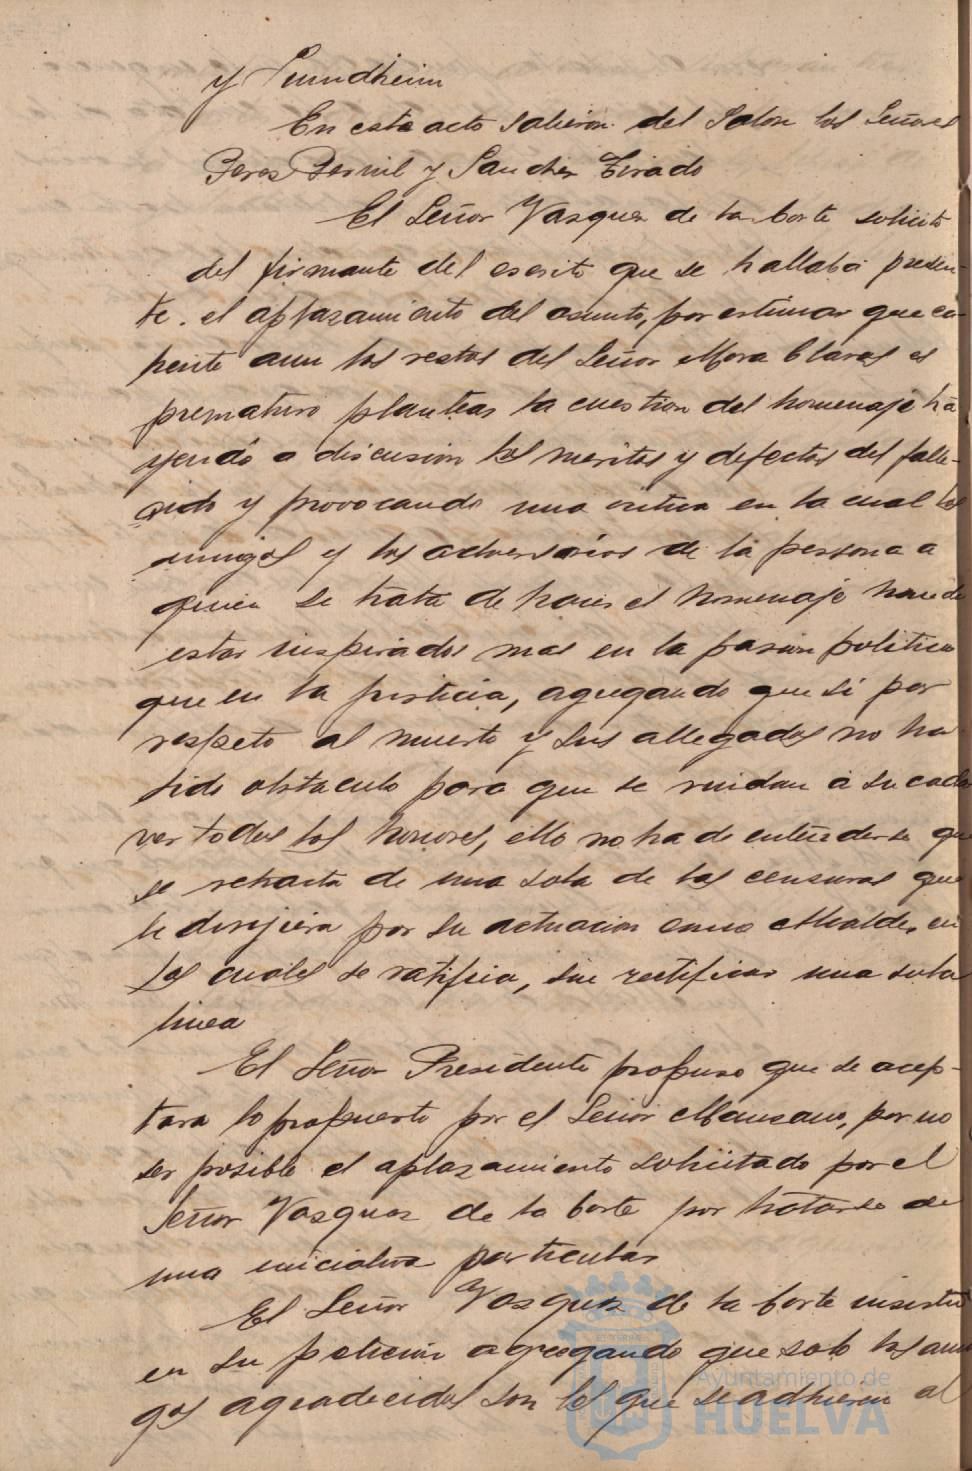 y Sundheim
En este acto salieron del Salon los Señores
Peres Pernil y Sanchez Tirado
El Señor Vasques de la Corte solicito
del firmante del escrito que se hallaba presen-
te. el aplazamiento del asunto, por estimar que ca-
liente aun los restos del Señor Mora Claros es
prematuro plantear la cuestion del homenaje tra
yendo a discusion los meritos y defectos del falle-
cido y provocando una critica en la cual los
amigos y los adversarios de la persona a
quien se trata de hacer el homenaje han de
estar inspirados mas en la pasion politica
que en la justicia, agregando que si por
respeto al muerto y sus allegados no ha
sido obstaculo para que se rindan á su cada
ver todos los honores, ello no ha de entenderse que
se retracta de una sola de las censuras que
le dirijiera por su actuacion como Alcalde, en
las cuales se ratifica, sin rectificar una sola
linea
El Señor Presidente propuso que se acep-
tara lo propuesto por el Señor Manzano, por no
ser posible el aplazamiento solicitado por el
Señor Vasques de la Corte por tratarse de
una iniciativa particular
El Señor Vasques de la Corte insistio
en su peticion agregando que solo los ami
gos agradecidos son los que se adhieren al
Ayuntamiento de
HUELVA